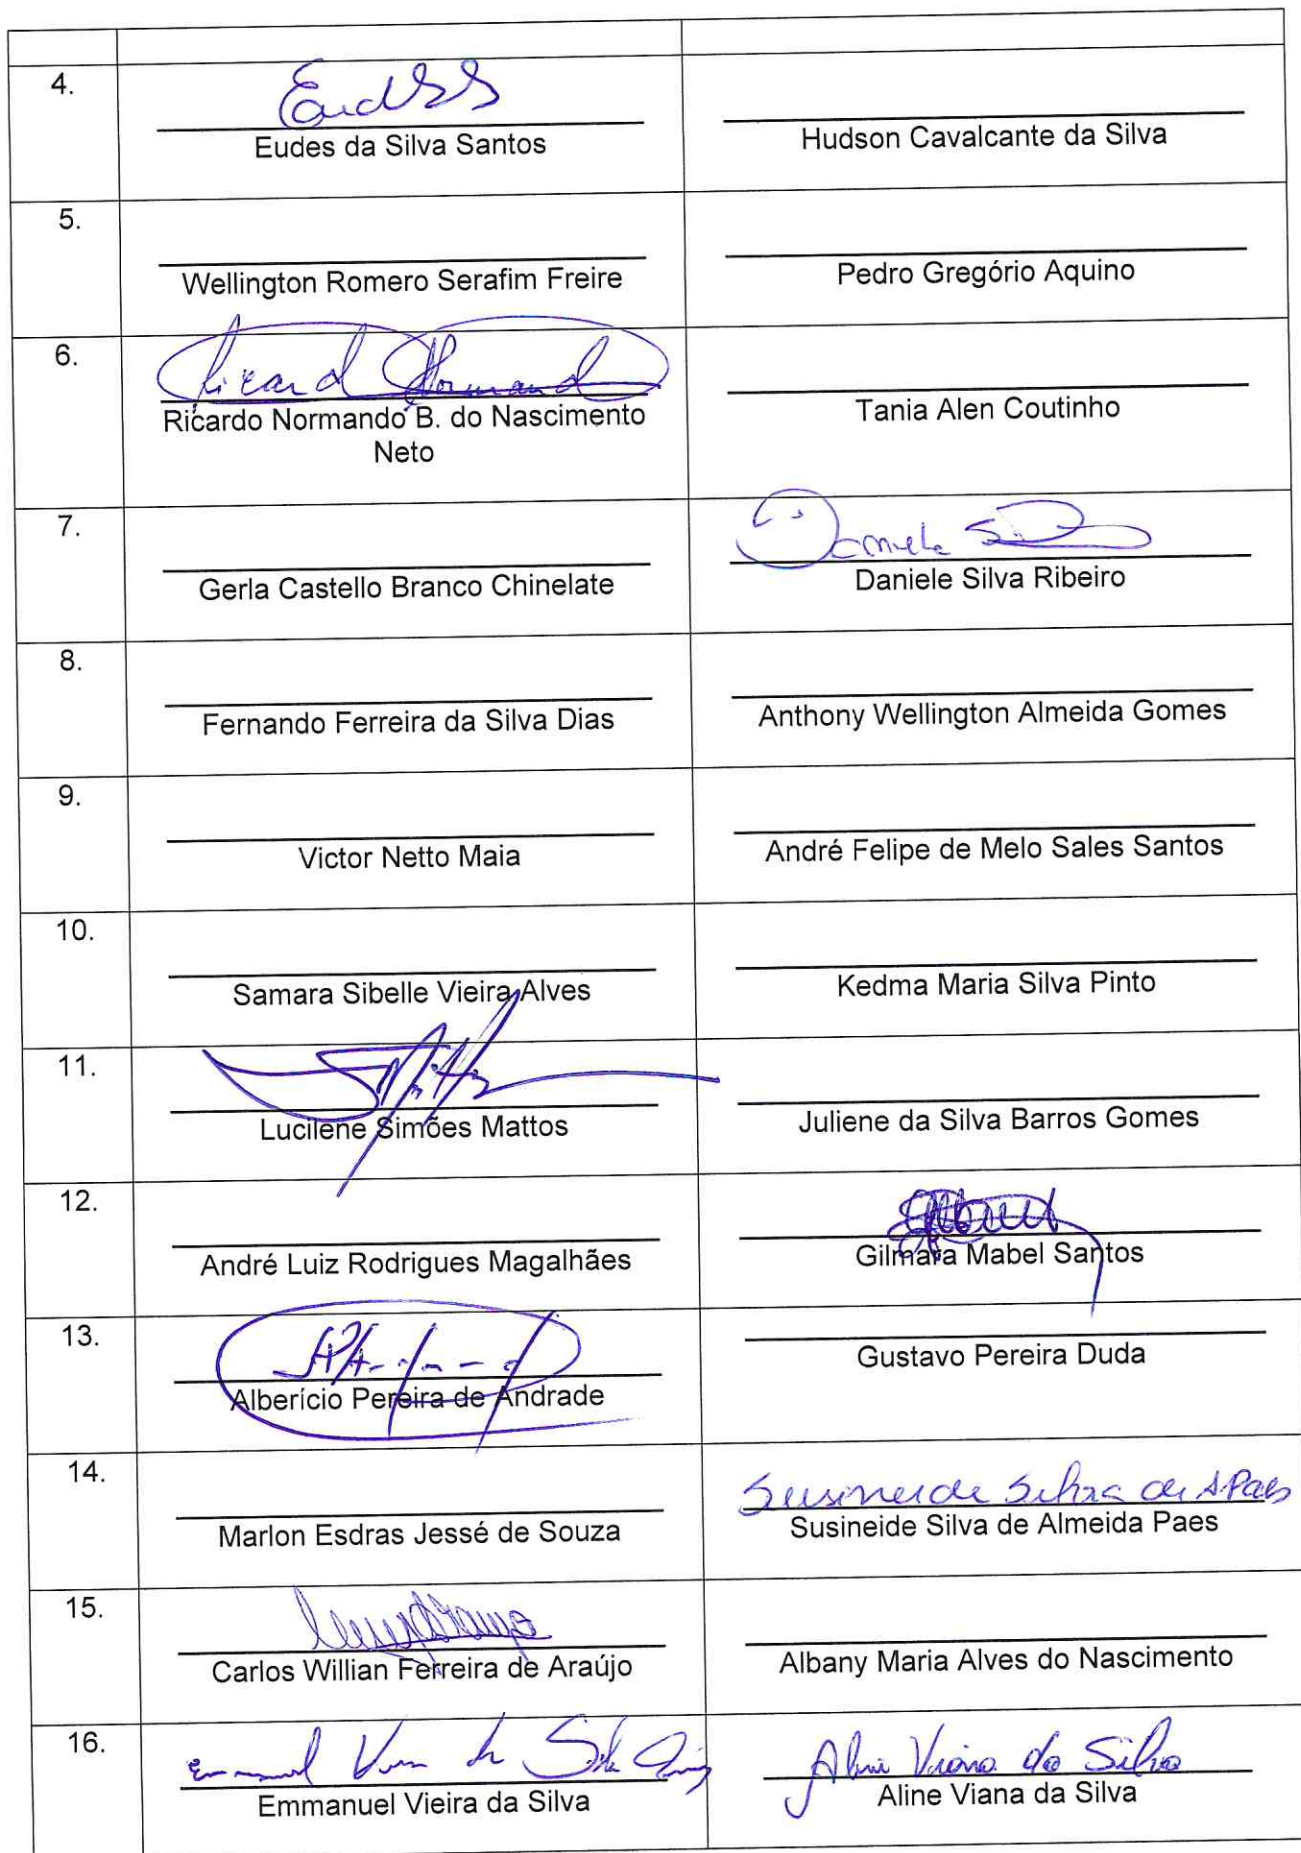 4.
EudSS
Eudes da Silva Santos
Hudson Cavalcante da Silva
5.
Wellington Romero Serafim Freire
Pedro Gregório Aquino
6.
Ricard Normand
Ricardo Normando B. do Nascimento
Neto
Tania Alen Coutinho
7.
Gerla Castello Branco Chinelate
Daniele
Daniele Silva Ribeiro
8.
Fernando Ferreira da Silva Dias
Anthony Wellington Almeida Gomes
9.
Victor Netto Maia
André Felipe de Melo Sales Santos
10.
Samara Sibelle Vieira Alves
Kedma Maria Silva Pinto
11.
Lucilene Simões Mattos
Juliene da Silva Barros Gomes
12.
André Luiz Rodrigues Magalhães
Gilmara Mabel Santos
13.
Alberício Pereira de Andrade
Gustavo Pereira Duda
14.
Marlon Esdras Jessé de Souza
Susineide Silva de A Paes
Susineide Silva de Almeida Paes
15.
Carlos Willian Ferreira de Araújo
Albany Maria Alves do Nascimento
16.
Emmanuel Vieira da Silva
Emmanuel Vieira da Silva
Aline Viana da Silva
Aline Viana da Silva